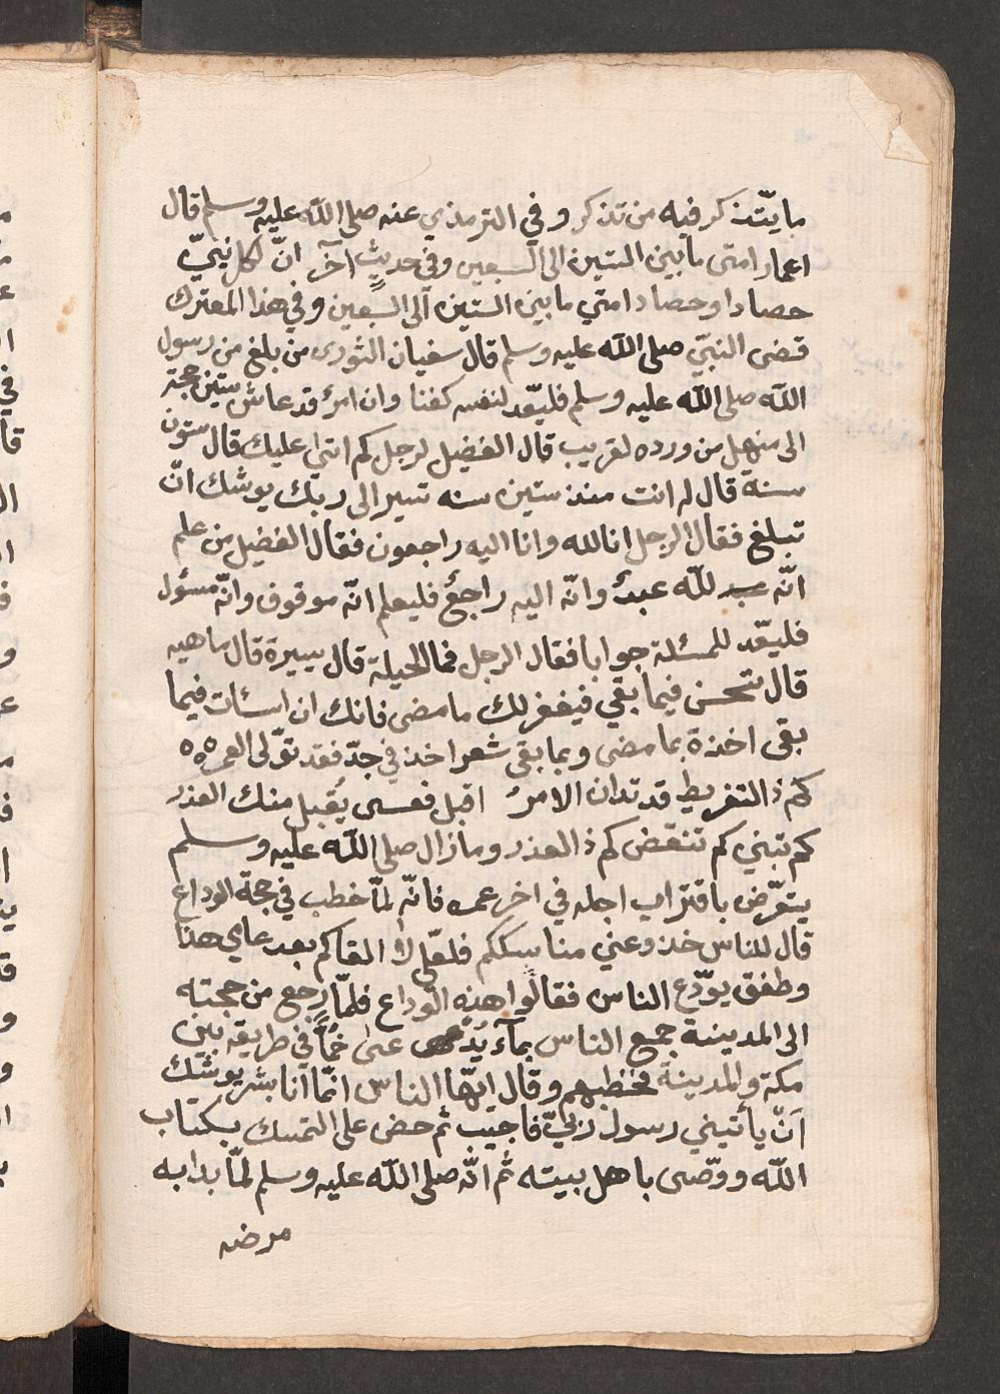 ما يتّذكر فيه من تذكر وفي الترمذي عنه صلى الله عليه وسلم قال
اعمار امتى مابين الستين الى السبعين وفى حديثٍ آخر انّ لكل نبيّ
حصادا وحصاد امتي مابين الستين آلى السبعين وفي هذا المعترك
قضى النبيّ صلى الله عليه وسلم قال سفيان الثورى من بلغ من رسول
الله صلى الله عليه وسلم فليعّد لنفسه كفنا وان امرُ قد عاش ستين حجة
الى منهل من ورده لقريب قال الفضيل لرجل كم اتي عليك قال ستون
سنة قال له انت منذ ستين سنه تسير الى ربك يوشك انّ
تبلغ فقال الرجل انا لله وانا اليه راجعون فقال الفضيل من علم
انّه لله عبدٌ وانّه اليه راجعٌ فليعلم انّه موقوف وانّه مسؤل
فليعّد للمسئلة جوابا فقال الرجل فما الحيلة قال يسيرة قال ما هيه
قال تحسن فيما بقي فيغفر لك ما مضى فانك ان اسئات فيما
بقى اخذة بما مضى وبما بقى شعر اخذ في جدّ فقد تولّى العمر ٥٥٥
كم ذ التفريط قد تدان الامرُ اقبل فعسى يُقبل منك العذر
كم تبني كم تنقض كم ذ العذر ومازال صلى الله عليه وسلم
يتعرّض باقتراب اجله في اخر عمره فانّه لمّا خطب في حجة الوداع
قال للناس خذو عني مناسككم فلعّلي لا القاكم بعد عامي هذا
وطفق يودّع الناس فقالوا هذه الوداع فلمّا رجع من حجته
الى المدينة جمع الناس بمآء يُدعى خُمًّا في طريقه بين
مكة والمدينة فخطبهم وقال ايّها الناس انّما انا بشر يوشك
آنّ يأتيني رسول ربيّ فاجيب ثم حض على التمسك بكتاب
الله ووصّى باهل بيته ثم انّه صلى الله عليه وسلم لمّا بدا به
مرضه